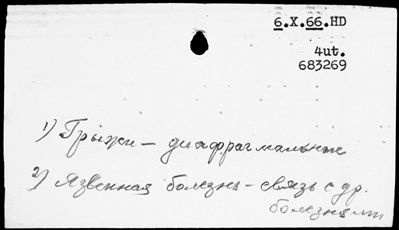 6.X.66.HD
4ut.
683269
1) Грыжи — диафрагмальные
2) Язвенная болезнь - связь с др.
болезнями